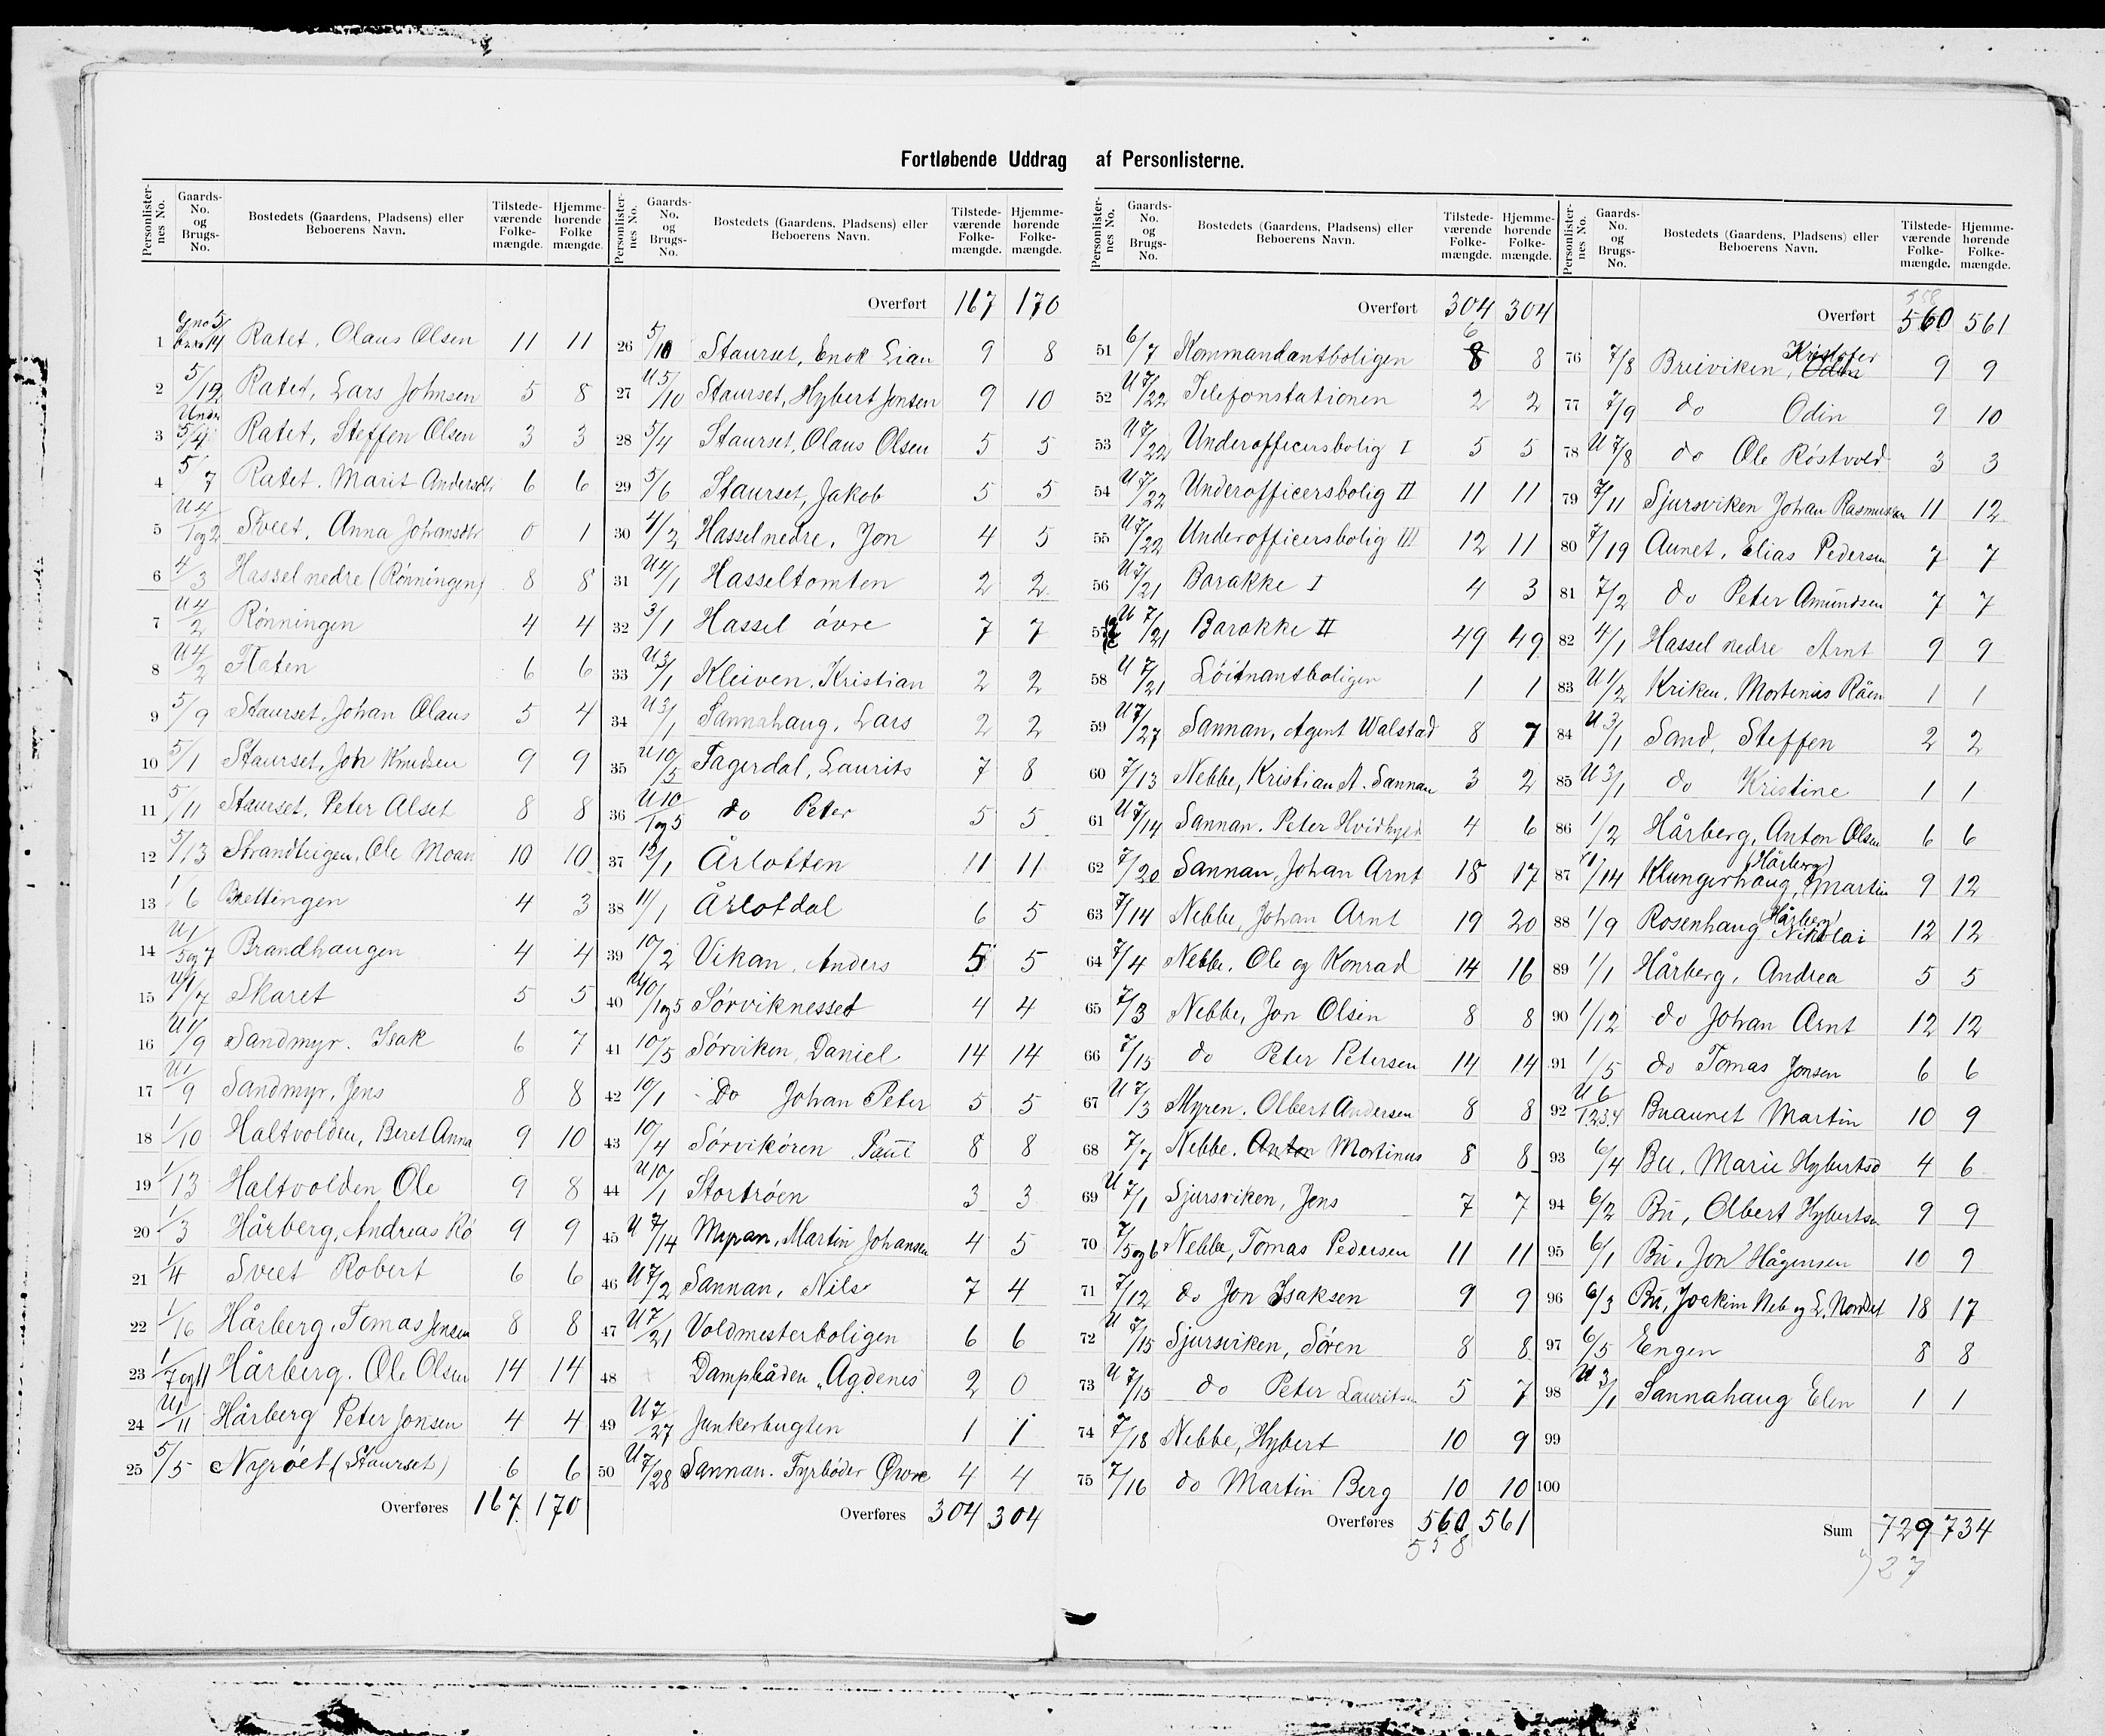 Fortløbende Uddrag af Personlisterne.
Personlister-nes No. Gaards-No. og Brugs-No. Bostedets (Gaardens, Pladsens) eller Beboerens Navn. Tilstede-værende Folke-mængde. Hjemme-hørende Folke mængde.
1 Gno 5/ 14 Ratet, Olaus Olsen 11 11
2 5/12 Ratet, Lars Johnsen 5 8
3 Under 5/4 Ratet, Steffen Olsen 3 3
4 5/7 Ratet, Marit Andersdtr 6 6
5 U 4/1 og 2 Sveet, Anna Johansdtr 0 1
6 4/3 Hassel nedre (Rønningen) 8 8
7 U 4/2 Rønningen 4 4
8 U 4/2 Flaten 6 6
9 5/9 Staurset, Johan Olaus 5 4
10 5/1 Staurset, Joh Knudsen 9 9
11 5/11 Staurset, Peter Alset 8 8
12 5/13 Strandteigen, Ole Moan 10 10
13 1/6 Brettingen 4 3
14 U 1/5 og 7 Brandhaugen 4 4
15 U 1/7 Skaret 5 5
16 U 1/9 Sandmyr. Isak 6 7
17 U 1/9 Sandmyr, Jens 8 8
18 1/10 Haltvolden, Beret Anna 9 10
19 1/13 Haltvolden Ole 9 8
20 1/3 Hårberg, Andreas Rö 9 9
21 1/4 Sveet Robert 6 6
22 1/16 Hårberg, Tomas Jensen 8 8
23 1/7 og 11 Hårberg. Ole Olsen 14 14
24 U 1/11 Hårberg Peter Jonsen 4 4
25 5/5 Nyrøet (Staurset) 6 6
Overføres 167 170
Personlister-nes No. Gaards-No. og Brugs-No. Bostedets (Gaardens, Pladsens) eller Beboerens Navn. Tilstede-værende Folke-mængde. Hjemme-hørende Folke-mængde.
Overført 167 170
26 5/10 Staurset, Enok Lian 9 8
27 U 5/10 Staurset, Hybert Jensen 9 10
28 5/4 Staurset, Olaus Olsen 5 5
29 5/6 Staurset, Jakob 5 5
30 4/2 Hasselnedre, Jon 4 5
31 U 4/1 Hasseltomten 2 2
32 3/1 Hassel øvre 7 7
33 U 3/1 Kleiven, Kristian 2 2
34 U 3/1 Sannahaug, Lars 2 2
35 U 10/5 Fagerdal, Laurits 7 8
36 U 10/1 og 5 do Peter 5 5
37 12/1 Årlotten 11 11
38 11/1 Årlotdal 6 5
39 10/2 Vikan, Anders 5 5
40 U 10/1 og 5 Sørviknesset 4 4
41 10/5 Sørviken, Daniel 14 14
42 10/1 Do Johan Peter 5 5
43 10/4 Sørvikøren Paul 8 8
44 U 10/1 Stortrøen 3 3
45 U 7/14 Myran, Martin Johansen 4 5
46 U 7/2 Sannan, Nils 7 4
47 U 7/21 Voldmesterboligen 6 6
48 Dampbåden „Agdenes 2 0
49 U 7/27 Junkerbugten 1 1
50 U 7/28 Sannan. Fyrbøder Øwre 4 4
Overføres 304 304
Personlister-nes No. Gaards-No. og Brugs-No. Bostedets (Gaardens, Pladsens) eller Beboerens Navn. Tilstede-værende Folke-mængde. Hjemme-hørende Folke-mængde.
Overført 304 304
51 6/7 Kommandantboligen 8 6 8
52 U 7/22 Telefonstationen 2 2
53 U 7/22 Underofficersbolig I 5 5
54 U 7/22 Underofficersbolig II 11 11
55 U 7/22 Underofficersbolig III 12 11
56 U 7/21 Barakke I 4 3
57 U 7/21 Barakke II 49 49
58 U 7/21 Löitnantboligen 1 1
59 U 7/27 Sannan, Agent Walstad 8 7
60 7/13 Nebbe, Kristian A. Sannan 3 2
61 U 7/14 Sannan. Peter Hvidkyld 4 6
62 7/20 Sannan, Johan Arnt 18 17
63 7/14 Nebbe, Johan Arnt 19 20
64 7/4 Nebbe. Ole og Konrad 14 16
65 7/3 Nebbe, Jon Olsen 8 8
66 7/15 do Peter Petersen 14 14
67 U 7/3 Myren. Olbert Andersen 8 8
68 7/7 Nebbe. Anton Mortinus 8 8
69 U 7/1 Sjursviken, Jens 7 7
70 7/5 og 6 Nebbe, Tomas Pedersen 11 11
71 7/12 do Jon Isaksen 9 9
72 U 7/15 Sjursviken, Søren 8 8
73 U 7/15 do Peter Lauritsen 5 7
74 7/18 Nebbe, Hybert 10 9
75 7/16 do Martin Berg 10 10
Overføres 560 561
558
Personlister-nes No. Gaards-No. og Brugs-No. Bostedets (Gaardens, Pladsens) eller Beboerens Navn. Tilstede-værende Folke-mængde. Hjemme-hørende Folke-mængde.
558
Overført 560 561
76 7/8 Breiviken, Odin Kristofer 9 9
77 7/9 do Odin 9 10
78 U 7/8 do Ole Røstvold 3 3
79 7/11 Sjursviken Johan Rasmussen 11 12
80 7/19 Aunet, Elias Pedersen 7 7
81 7/2 do Peter Amundsen 7 7
82 4/1 Hassel nedre Arnt 9 9
83 U 1/2 Kriken. Mortenius Råen 1 1
84 U 3/1 Sand, Steffen 2 2
85 U 3/1 do Kristine 1 1
86 1/2 Hårberg, Anton Olsen 6 6
87 1/14 Klungerhaug, (Hårberg) Martin 9 12
88 1/9 Rosenhaug (Hårberg) Nikolai 12 12
89 1/1 Hårberg, Andrea 5 5
90 1/12 do Johan Arnt 12 12
91 1/5 do Tomas Jonsen 6 6
92 U 6/1.2.3.4 Buaunet Martin 10 9
93 6/4 Bu. Marie Hybertsd 4 6
94 6/2 Bu, Olbert Hybertsen 9 9
95 6/1 Bu, Jon Hågensen 10 9
96 6/3 Bu, Joakim Neb og L. Nordset 18 17
97 6/5 Engen 8 8
98 U 3/1 Sannahaug Elen 1 1
99
100
Sum 729 734
727